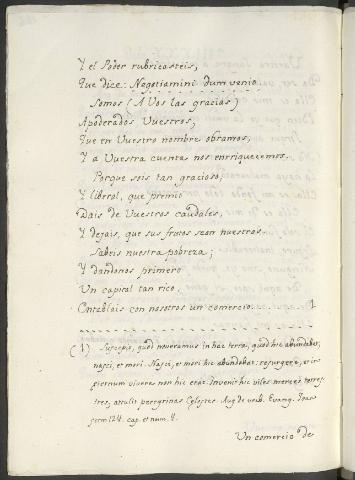 Y el Poder rubricasteis,
Que dice: Negotiamini dum venio.
Somos (A Vos las gracias)
Apoderados Vuestros;
Que en Vuestro nombre obramos,
Y a Vuestra cuenta nos enrriquecemos.
Porque sois tan gracioso,
Y liberal, que premio
Dais de Vuestros caudales,
Y dejais, que sus frutos sean nuestros.
Sabeis nuestra pobreza;
Y dandonos primero
Un capital tan rico,
Entablais con nosotros un comercio. 1
(1) Suscepit, quod noveramus in hac terra, quod hic abundabat,
nasci, et mori. Nasci, et mori hic abundabat: resurgere, et in
eternum vivere non hic erat. Invenit hic viles merces terres-
tres, attulit peregrinas Celestes. Aug de verb. Evang. Joan
serm 124. cap. et num. 4.
Un comercio de